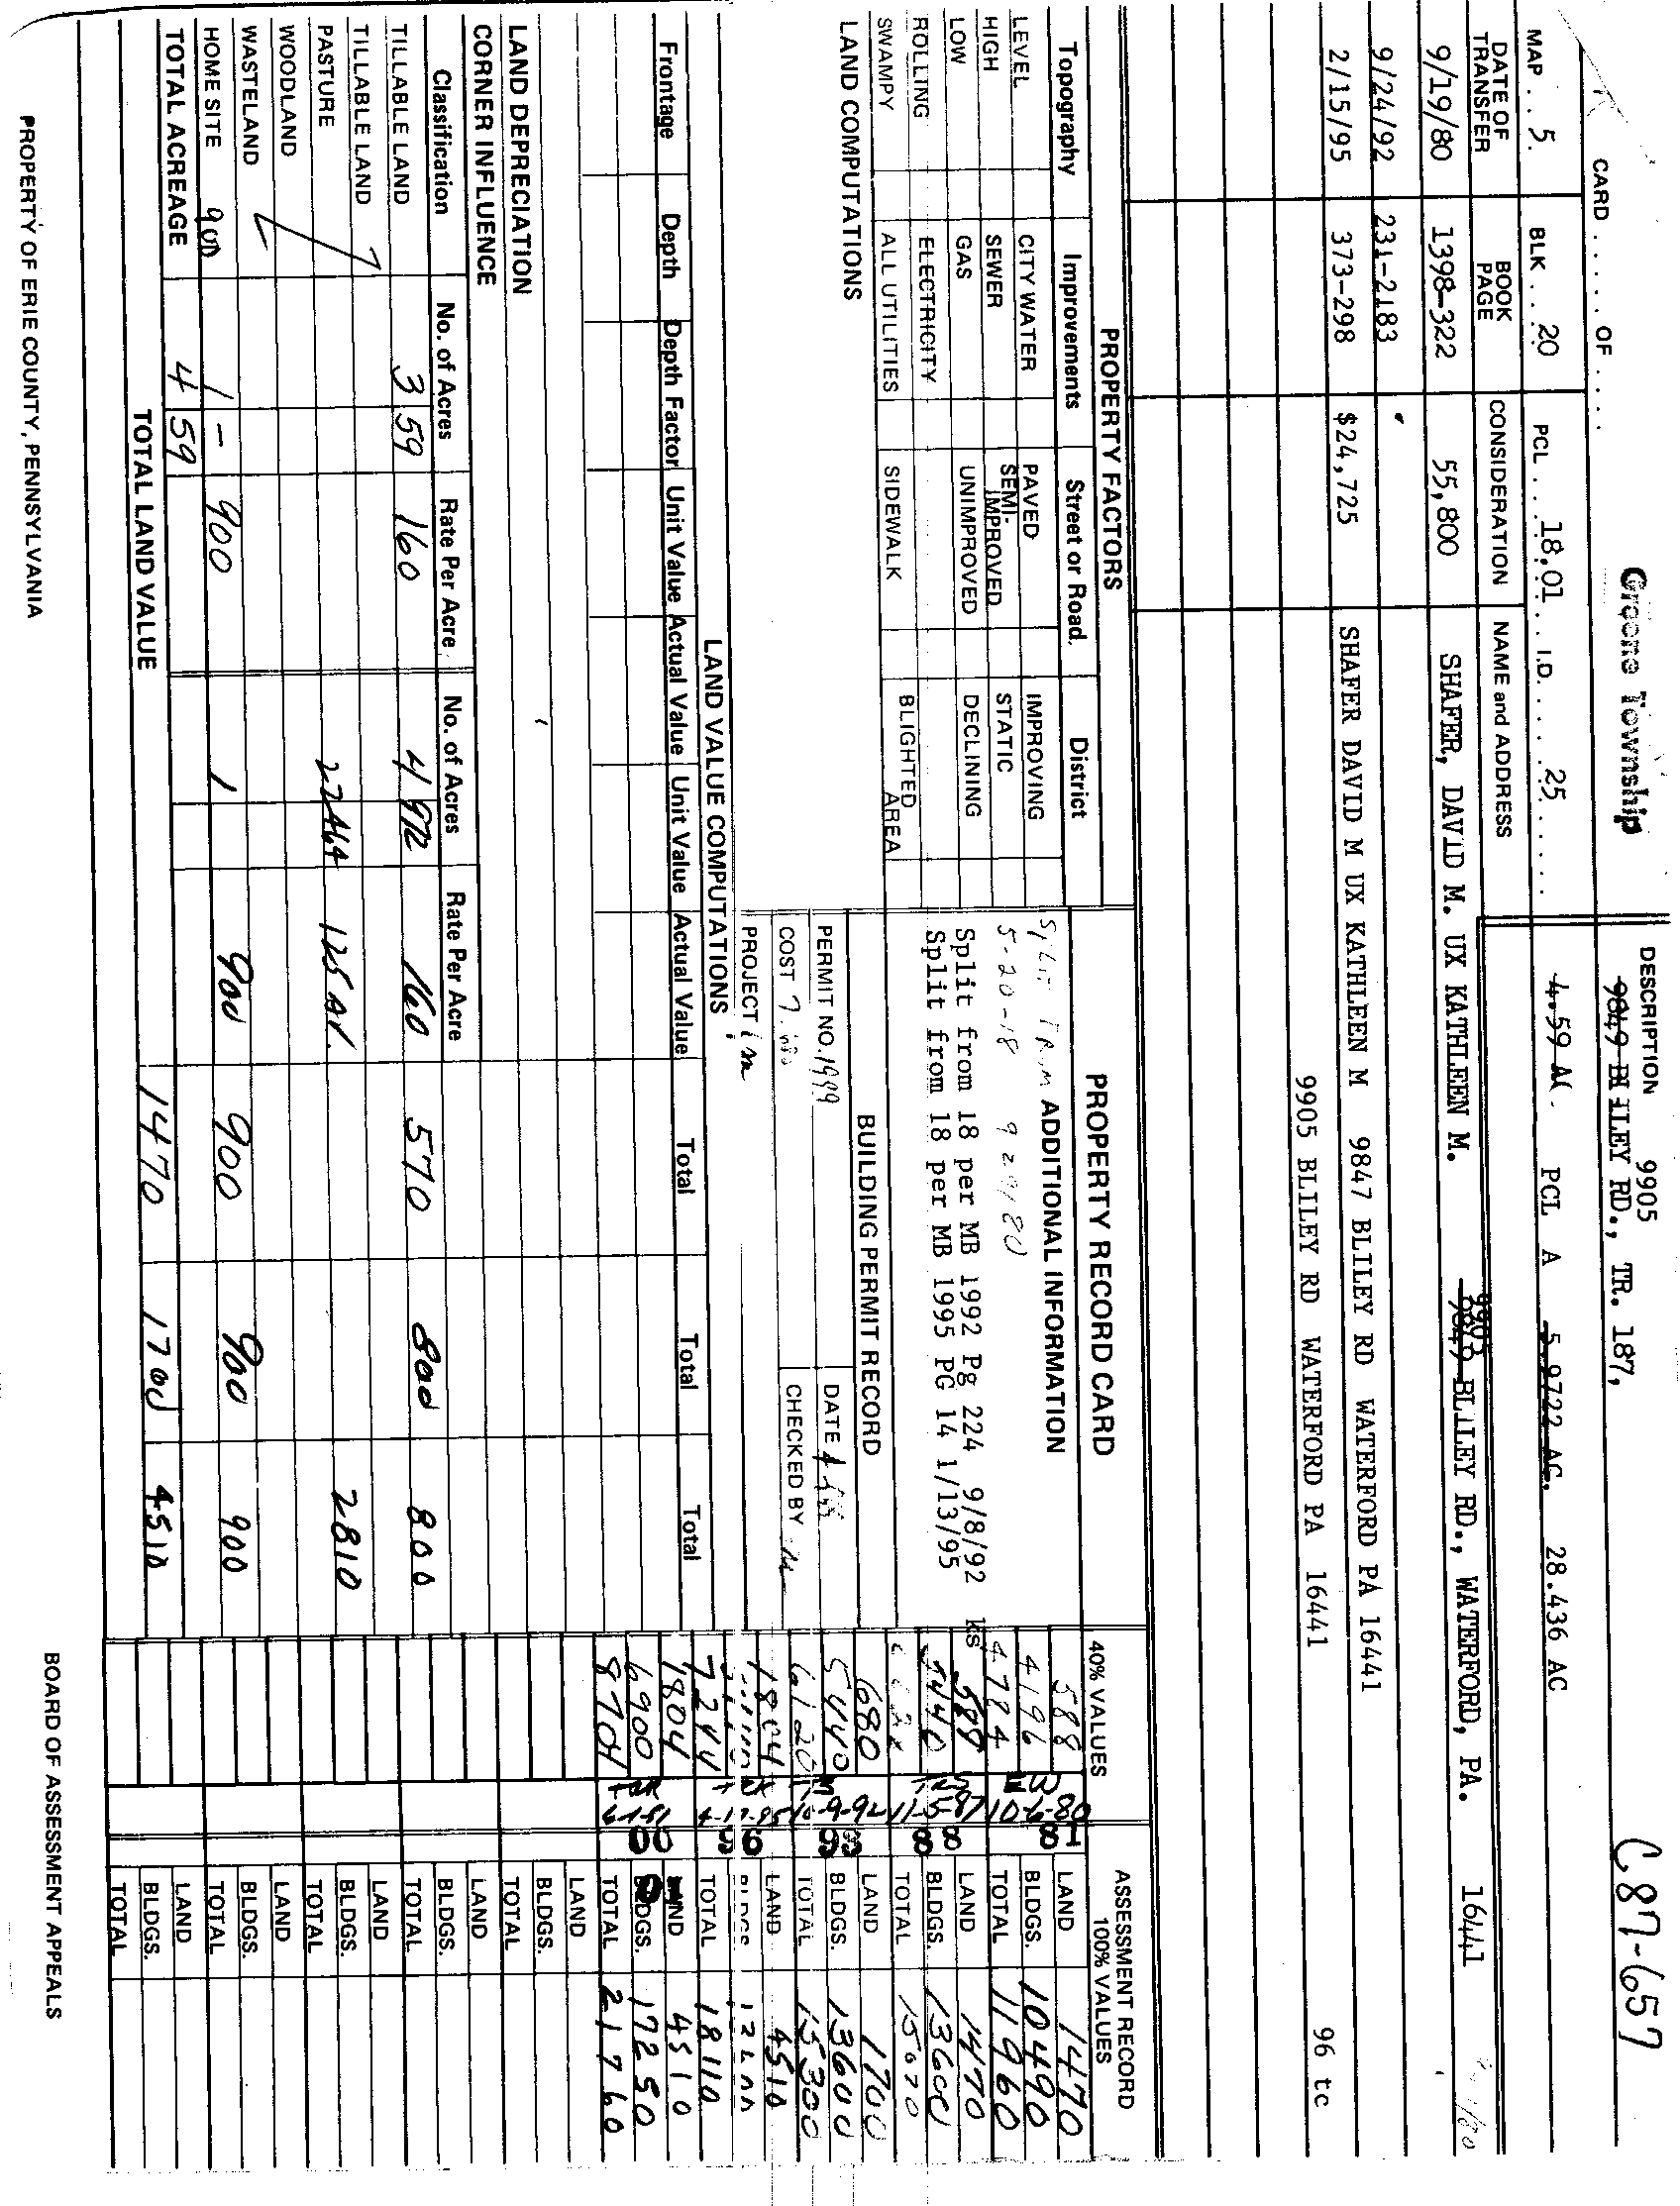 CARD ..... OF .... Greene Township DESCRIPTION 9905 C87-657
9849 BLILEY RD., TR. 187,
MAP .. 5. BLK ... 20 PCL ... 18.01 .. I.D. .... 25 .....
4.59 AC. PCL A 5.9722 AC. 28.436 AC
DATE OF TRANSFER BOOK PAGE CONSIDERATION NAME and ADDRESS
9/19/80 1398-322 55,800 SHAFER, DAVID M. UX KATHLEEN M. 9849 BLILEY RD., WATERFORD, PA. 16441
9/24/92 231-2183
2/15/95 373-298 $24,725 SHAFER DAVID M UX KATHLEEN M 9847 BLILEY RD WATERFORD PA 16441
9905 BLILEY RD WATERFORD PA 16441 96 tc
PROPERTY FACTORS
Topography Improvements Street or Road. District
LEVEL CITY WATER PAVED IMPROVING
HIGH SEWER SEMI-IMPROVED STATIC
LOW GAS UNIMPROVED DECLINING
ROLLING ELECTRICITY BLIGHTED AREA
SWAMPY ALL UTILITIES SIDEWALK
LAND COMPUTATIONS
PROPERTY RECORD CARD
ADDITIONAL INFORMATION
SPLIT FROM
5-20-18 9/29/80
Split from 18 per MB 1992 Pg 224 9/8/92 ks
Split from 18 per MB 1995 PG 14 1/13/95
BUILDING PERMIT RECORD
PERMIT NO. 1999 DATE
COST CHECKED BY
PROJECT
LAND VALUE COMPUTATIONS
Frontage Depth Depth Factor Unit Value Actual Value Unit Value Actual Value Total Total Total
LAND DEPRECIATION
CORNER INFLUENCE
Classification No. of Acres Rate Per Acre No. of Acres Rate Per Acre
TILLABLE LAND 3 59 160 4 972 160 570 800 800
TILLABLE LAND
PASTURE 22464 125 av. 2810
WOODLAND
WASTELAND
HOME SITE 900 1 - 900 1 900 900 900 900
TOTAL ACREAGE 4 59
TOTAL LAND VALUE 1470 1700 4510
40% VALUES ASSESSMENT RECORD 100% VALUES
588 LAND 1470
4196 BLDGS. 10490
4784 10-6-80 81 TOTAL 11960
588 LAND 1470
5440 BLDGS. 13600
11-5-87 88 TOTAL 15070
680 LAND 1700
5440 BLDGS. 13600
6120 10-9-92 93 TOTAL 15300
1804 LAND 4510
BLDGS.
7244 96 TOTAL 18110
1804 LAND 4510
6900 BLDGS. 17250
8704 00 TOTAL 21760
LAND
BLDGS.
TOTAL
LAND
BLDGS.
TOTAL
LAND
BLDGS.
TOTAL
LAND
BLDGS.
TOTAL
LAND
BLDGS.
TOTAL
PROPERTY OF ERIE COUNTY, PENNSYLVANIA BOARD OF ASSESSMENT APPEALS